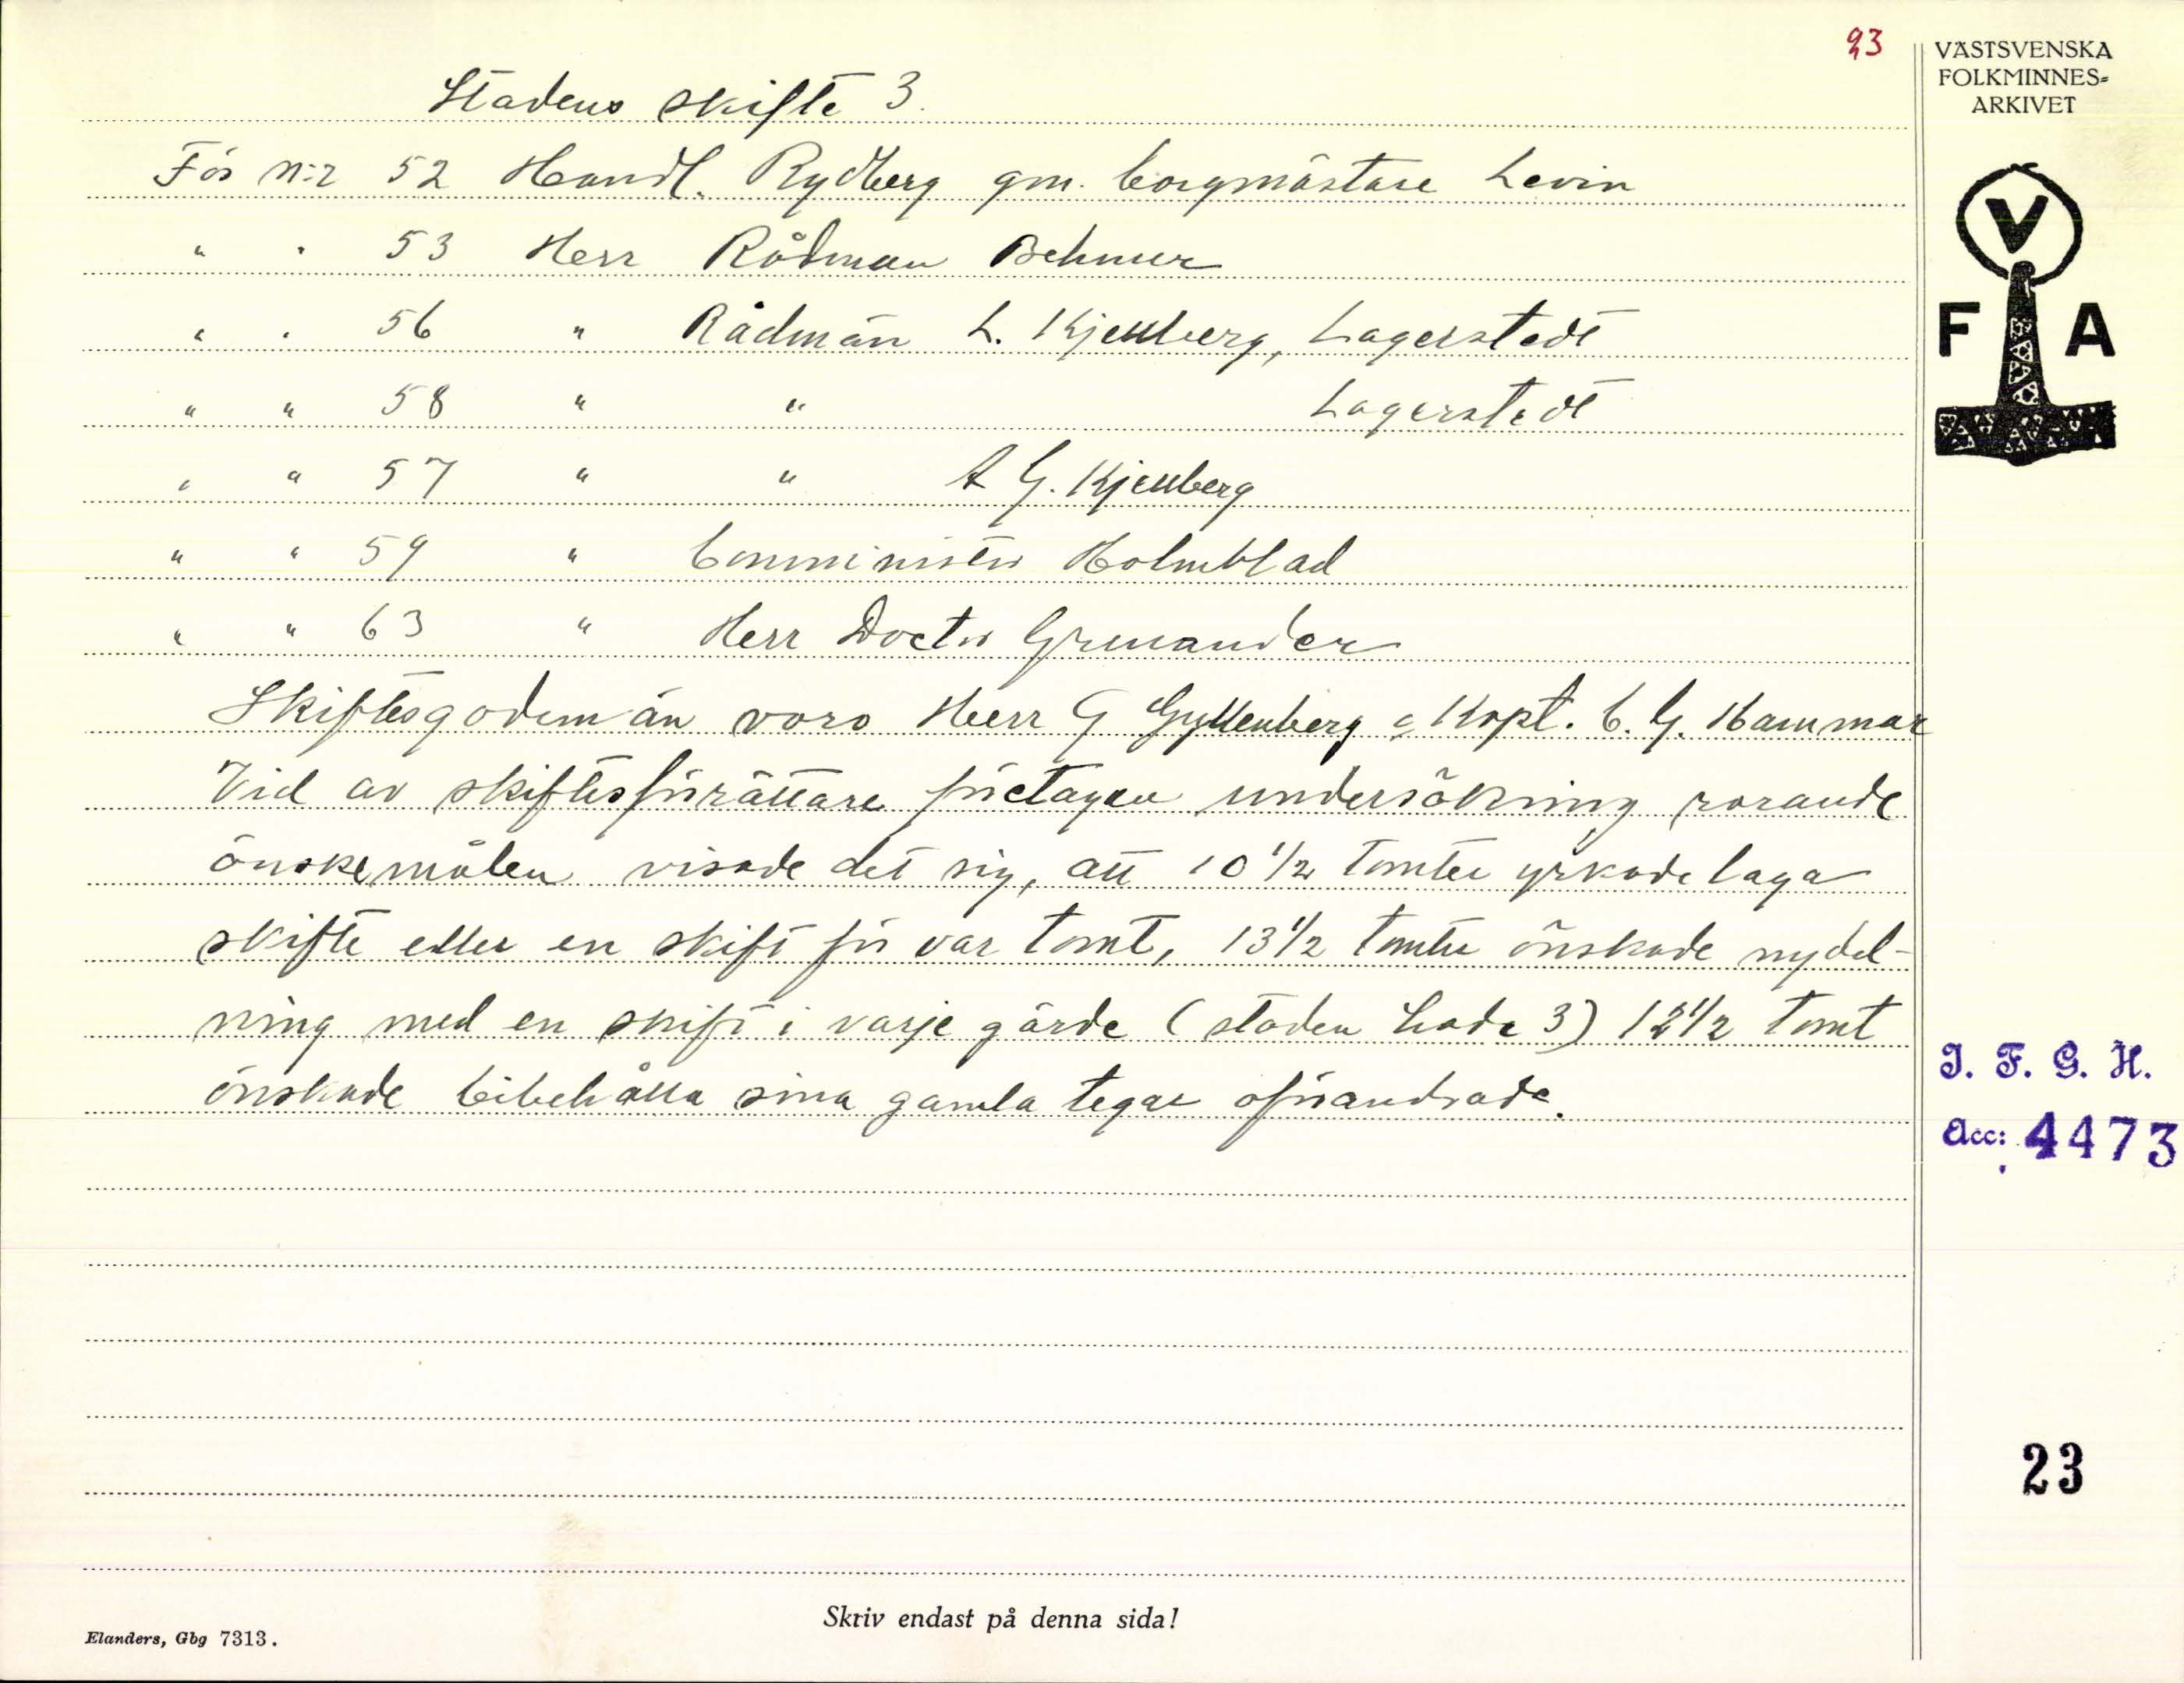 23
Stadens skifte 3.
För n:r 52 Handl. Rydberg gm. borgmästare Levin
" " 53 Herr Rådman Behmer
" " 56 " Rådmän L. Kjellberg, Lagerstedt
" " 58 " " Lagerstedt
" " 57 " " A G. Kjellberg
" " 59 " Comminister Holmblad
" " 63 " Herr Doctor Grenander
Skiftesgodemän voro Herr G Gyllenberg & Kapt. C. G. Hammar
Vid av skiftesförrättare företagen undersökning rorande
önskemålen visade det sig, att 10 1/2 tomter yrkade laga
skifte eller en skift för var tomt, 13 1/2 tomter önskade nydel-
ning med en skift i varje gärde (staden hade 3) 1/2 tomt
önskade bibehålla sina gamla tegar oförändrade.
VÄSTSVENSKA
FOLKMINNES=
ARKIVET
V
F A
I. F. G. H.
Acc: 4473
23
Skriv endast på denna sida!
Elanders, Gbg 7313.